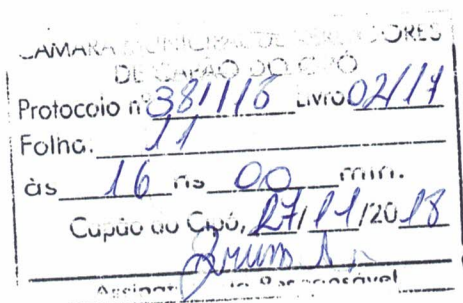 CÂMARA MUNICIPAL DE VEREADORES
DE CAPÃO DO CIPÓ
Protocolo nº 381/18 Livro 02/17
Folha. 11
às 16 hs 00 min.
Capão do Cipó, 27/11/2018
Responsável